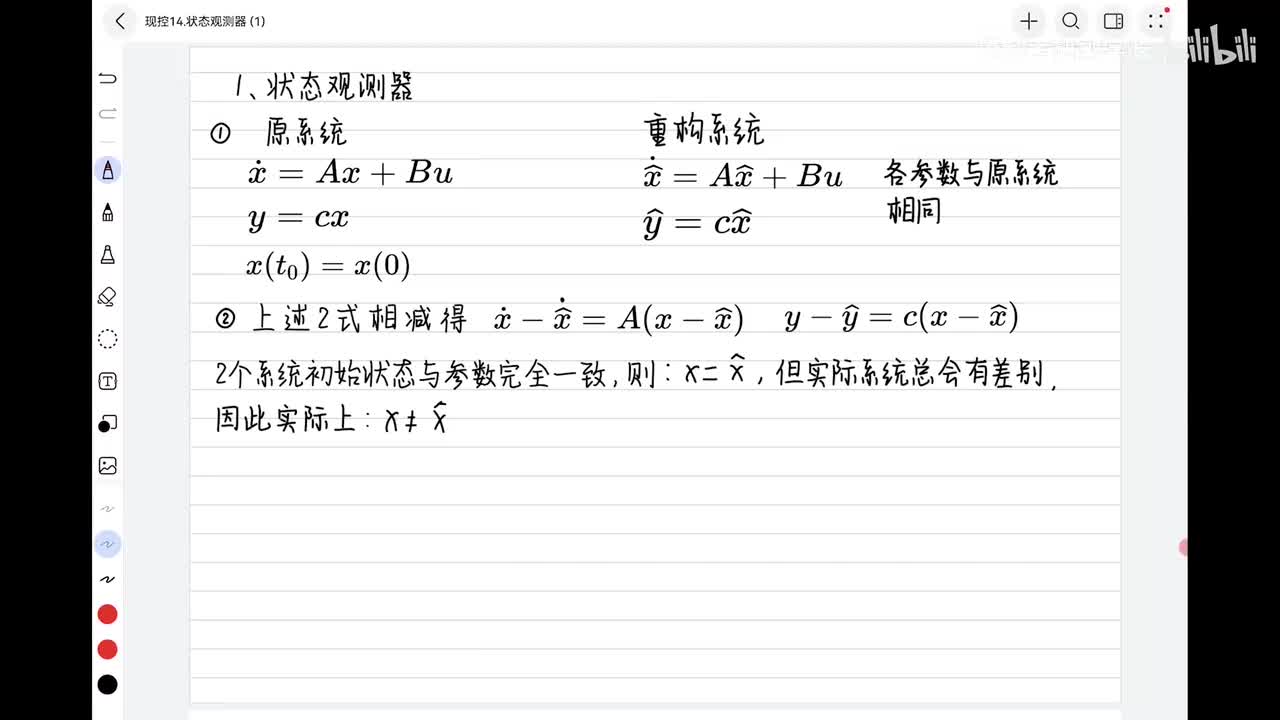 现控14.状态观测器 (1)
bilibili
1、状态观测器
① 原系统 重构系统
ẋ = Ax + Bu x̂̇ = Ax̂ + Bu 各参数与原系统
相同
y = cx ŷ = cx̂
x(t₀) = x(0)
② 上述2式相减得 ẋ − x̂̇ = A(x − x̂) y − ŷ = c(x − x̂)
2个系统初始状态与参数完全一致,则: x = x̂ ,但实际系统总会有差别,
因此实际上: x ≠ x̂